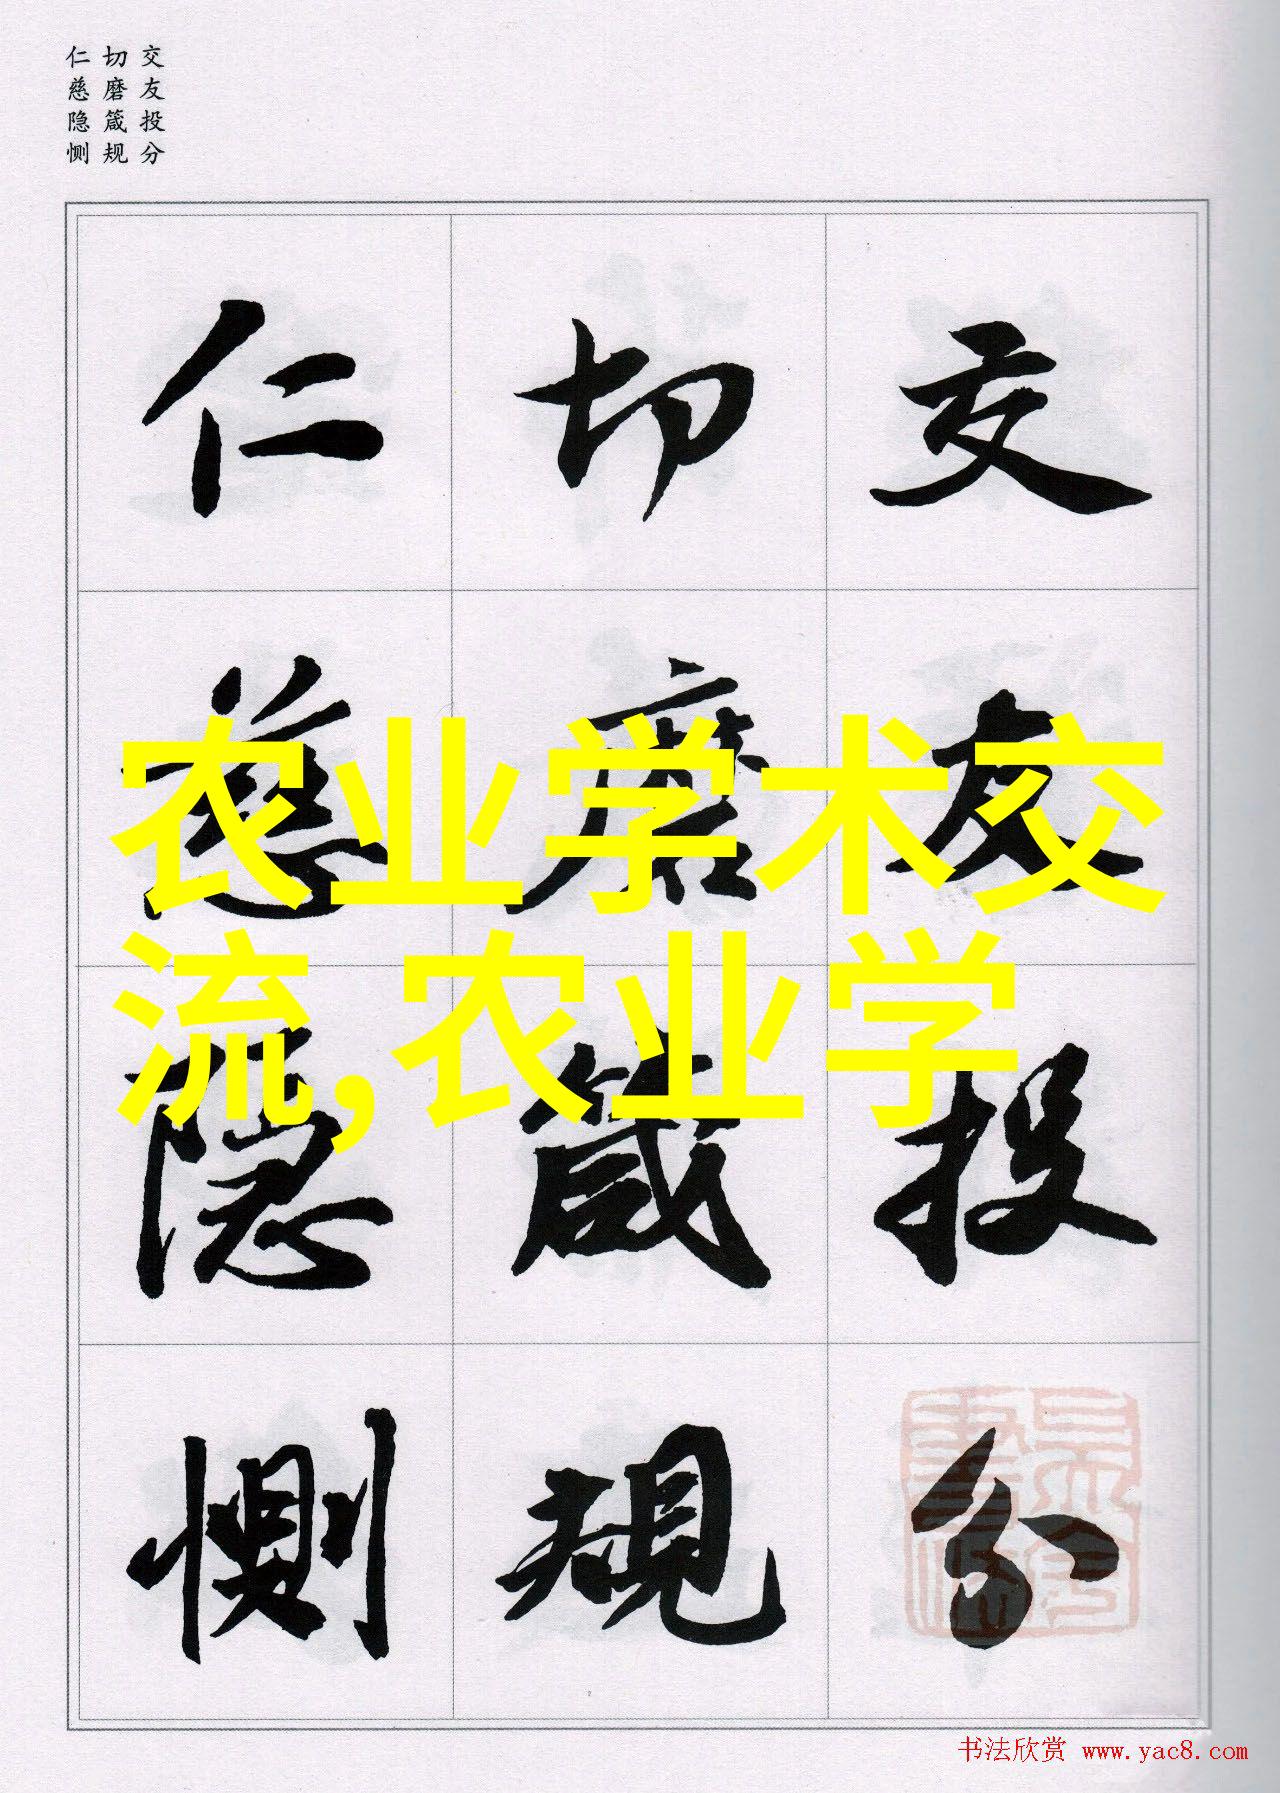 交友投分
切磨箴规
仁慈隐恻
交友投分
切磨箴规
仁慈隐恻
农业学术交
流,农业学
书法欣赏 www.yac8.com